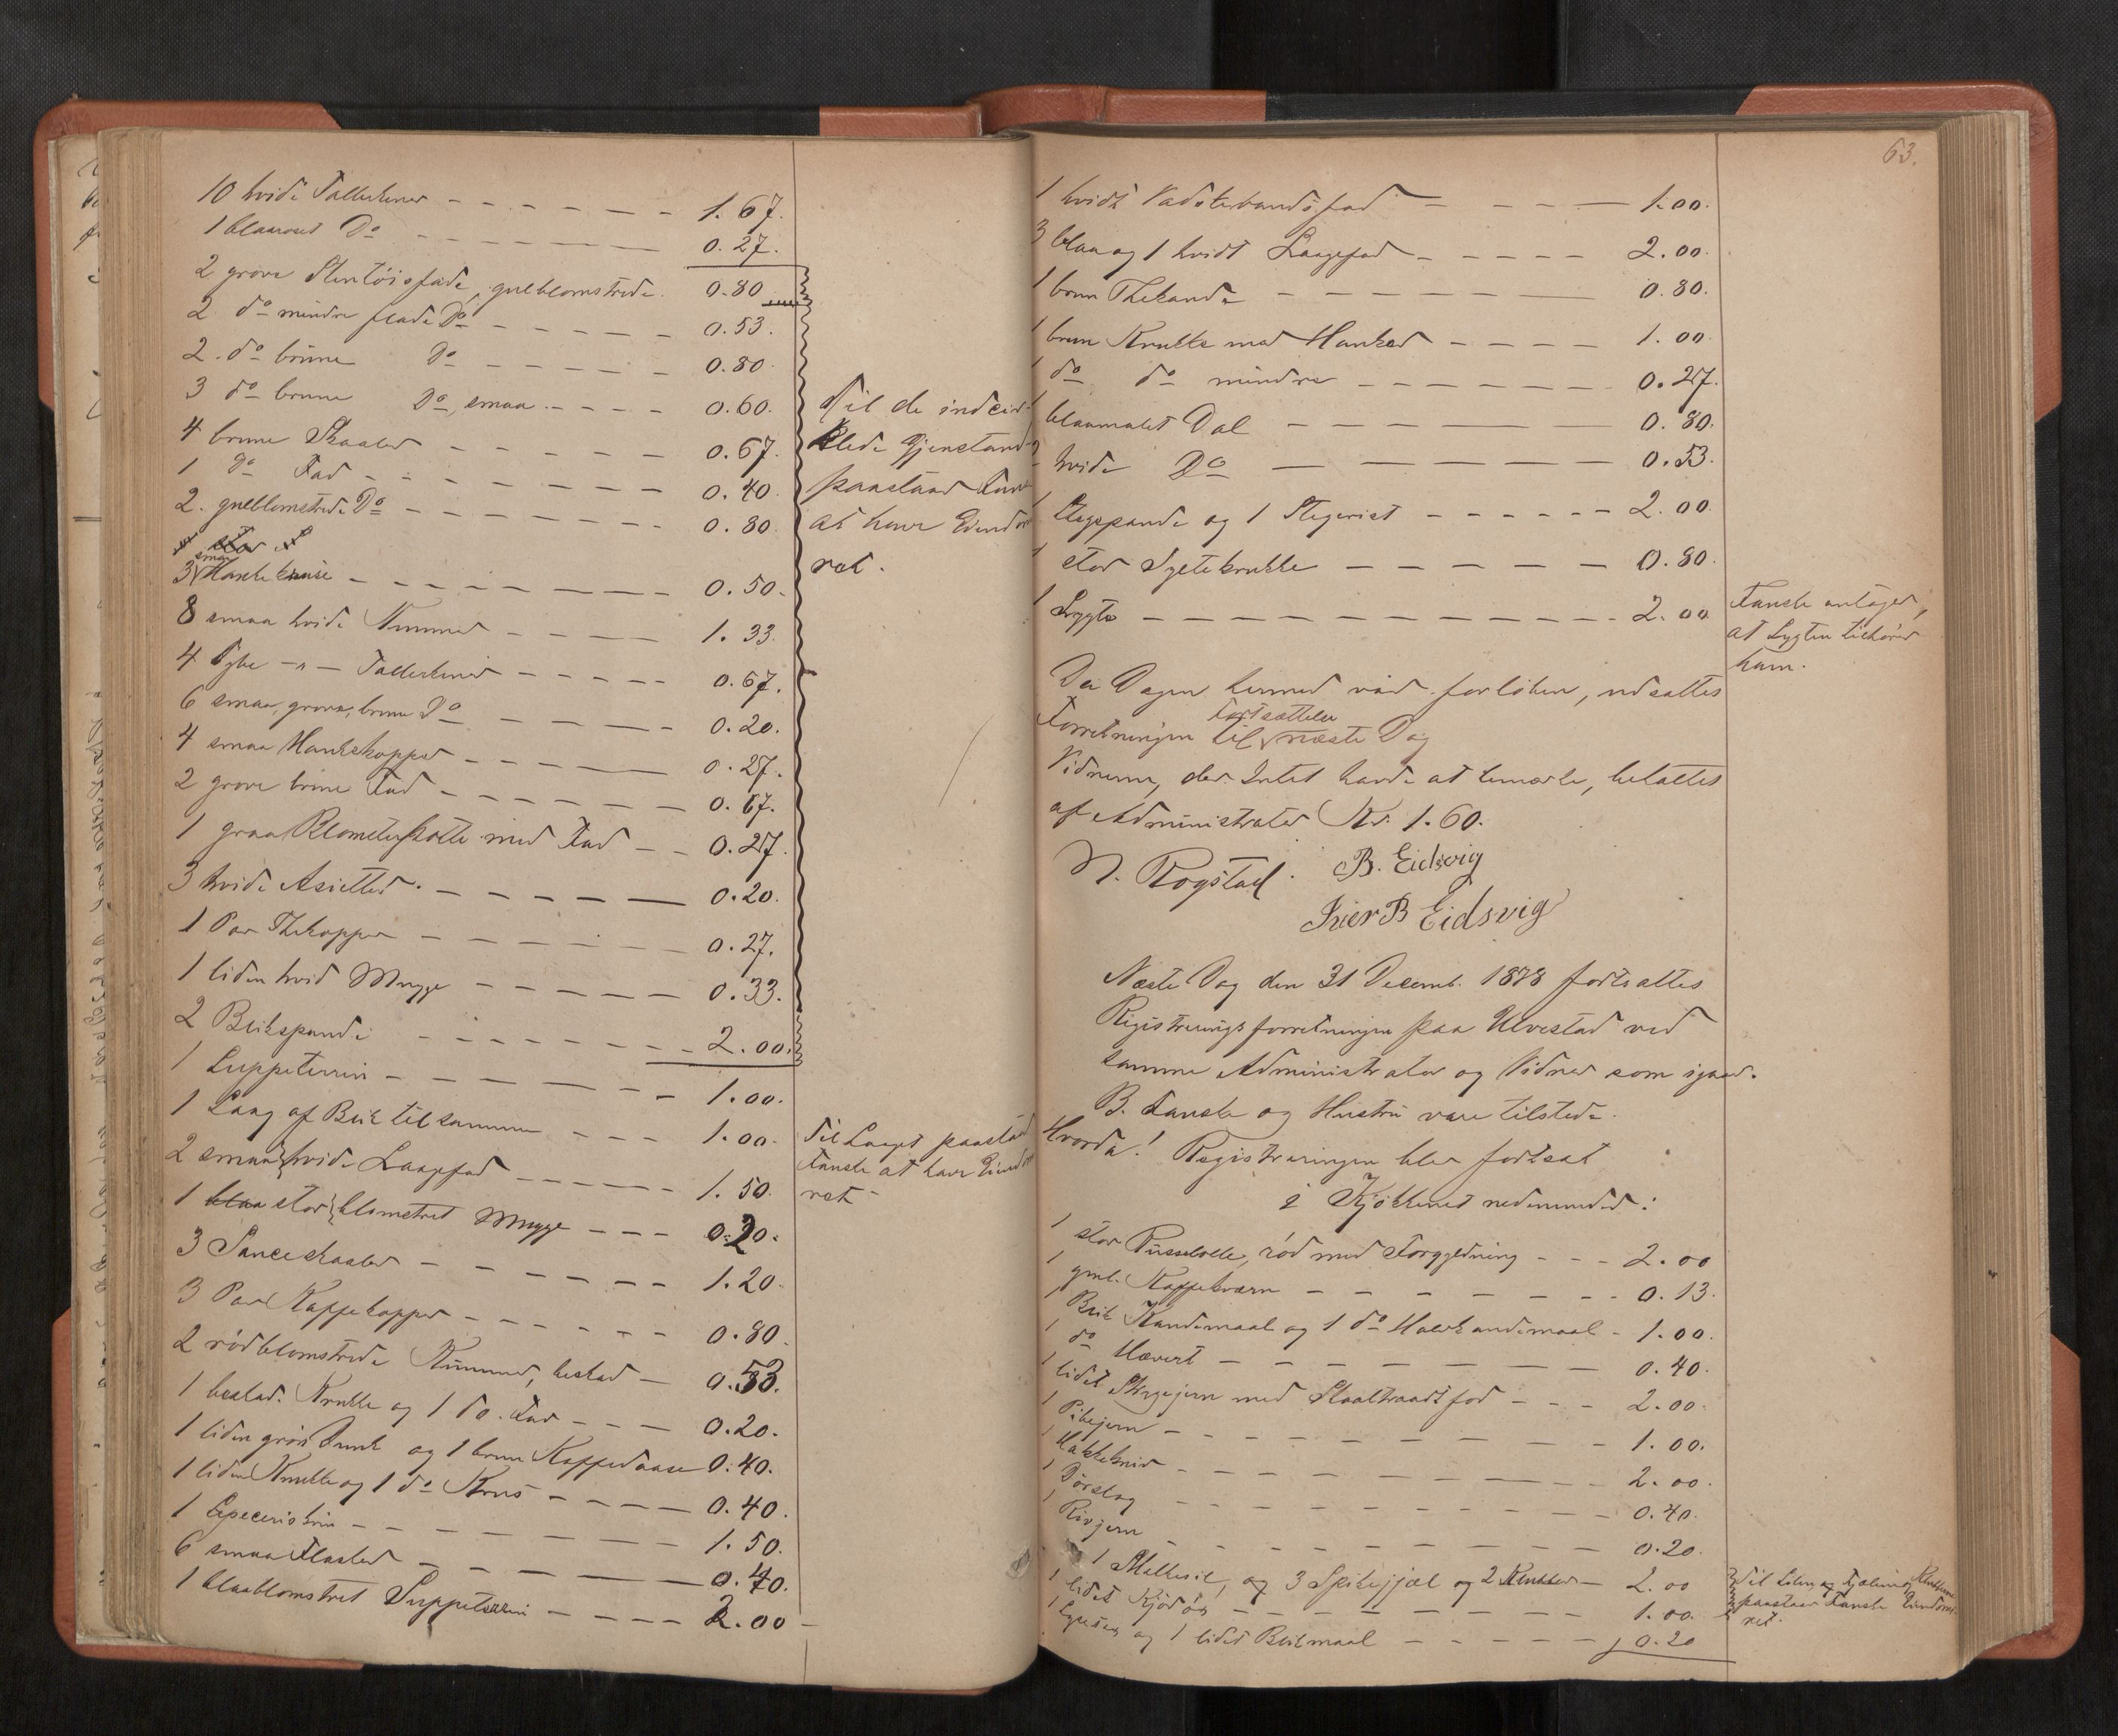 10 hvide Tallerkener - - - - - - 1.67.
1 blaaroset Do - - - - - - 0.27.
2 grove Stentöisfade, gulblomstrede 0.80
2 do mindre flade Do - - - - - 0.53.
2. do brune Do - - - - - - 0.80.
3 do brune Do, smaa - - - - 0.60.
4 brune Skaaler - - - - - - 0.67.
1 Do Fad - - - - - - - 0.40.
2. gulblomstrede Do - - - - - - 0.80.
3 smaa Hankekruse - - - - - - 0.50.
8 smaa hvide Kummer - - - - 1.33.
4 dybe -"- Tallerkener - - - - - 0.67.
6 smaa, grove, brune Do - - - - 0.20.
4 smaa Hankekopper - - - - - 0.27.
2 grove brune Fad - - - - - - 0.67.
1 graa Blomsterpotte med Fad - - 0.27.
3 hvide Asietter - - - - - 0.20.
1 Par Thekopper - - - - - - 0.27.
1 liden hvid Mugge - - - - - 0.33.
2 Blikspande - - - - - - - 2.00.
1 Suppeterrin - - - - - - - 1.00.
1 Laag af Blik til samme - - - 1.00.
2 smaa hvide Laagefad - - - - - 1.50.
1 blaa stor blomstret Mugge - - - 0.20.
3 Sauceskaaler - - - - - - 1.20.
3 Par Kaffekopper - - - - - - 0.80.
2 rödblomstrede Kummer, beskad - 0.53.
1 beskad. Krukke og 1 do. Fad - - - 0.20.
1 liden grön Dunk og 1 brun Kaffedaase 0.40.
1 liden Krukke og 1 do Krus - - - - 0.40.
1 Specerisskrin - - - - - - - 1.50.
6 smaa Flasker - - - - - - 0.40.
1 blaablomstret Suppeterrin - - - - 2.00
Til de indcir-
klede Gjenstande
paastaar Fanske
at have Eiendoms
ret.
Til Laaget paastaar
Fanske at have Eiendoms
ret.
63.
1 hvidt Vadskevandsfad - - - - 1.00.
3 blaa og 1 hvidt Laagefad - - - - - 2.00.
1 brun Thekande - - - - - - 0.80.
1 brun Krukke med Hanker - - - - 1.00.
1 do do mindre - - - - - - 0.27.
blaamalet Dal - - - - - 0.80.
hvide Do - - - - - 0.53.
1 Stegepande og 1 Stegerist - - - - - - 2.00.
1 stor Sylte krukke - - - - - 0.80.
1 Lygte - - - - - - - - - - 2.00
Fanske antager,
at Lygten tilhører
ham.
Da Dagen hermed var forløben, udsattes
Forretningen til Fortsættelse næste Dag
Vidnerne, der Intet havde at bemærke, betaltes
af Administrator Kr. 1.60.
N. Rogstad. B. Eidsvig
Iver B Eidsvig
Næste Dag den 31 Decemb. 1878 fortsattes
Registreringsforretningen paa Ulvestad ved
samme Administrator og Vidner som igaar.
B. Fanske og Hustru vare tilstede.
Hvorda! Registreringen blev fortsat
i Kjøkkenet nedenunder:
1 stor Pusselolle, rød med Forgyldning - - - 2.00
1 gml. Kaffekværn - - - - - - - 0.13.
1 Blik Kandemaal og 1 do Halvkandemaal - 1.00.
1 do Hævert - - - - - - - 0.40.
1 lidet Strygejern med Staaltraadsfod - - - 2.00.
1 Pibejern - - - - - - - - - 1.00.
1 Hakkekniv - - - - - - - - 2.00.
1 Dörslag - - - - - - - - 0.40.
1 Rivjern - - - - - - - - 0.20.
1 Melkesil, og 3 Spikefjæl og 2 Krukker - 2.00
1 lidet Kjødøs - - - - - - - - 1.00.
1 og 1 lidet Blikmaal - - - - - 0.20
Til Silen og Fjælene og Krukkerne
paastaar Fanske Eiendoms
ret.